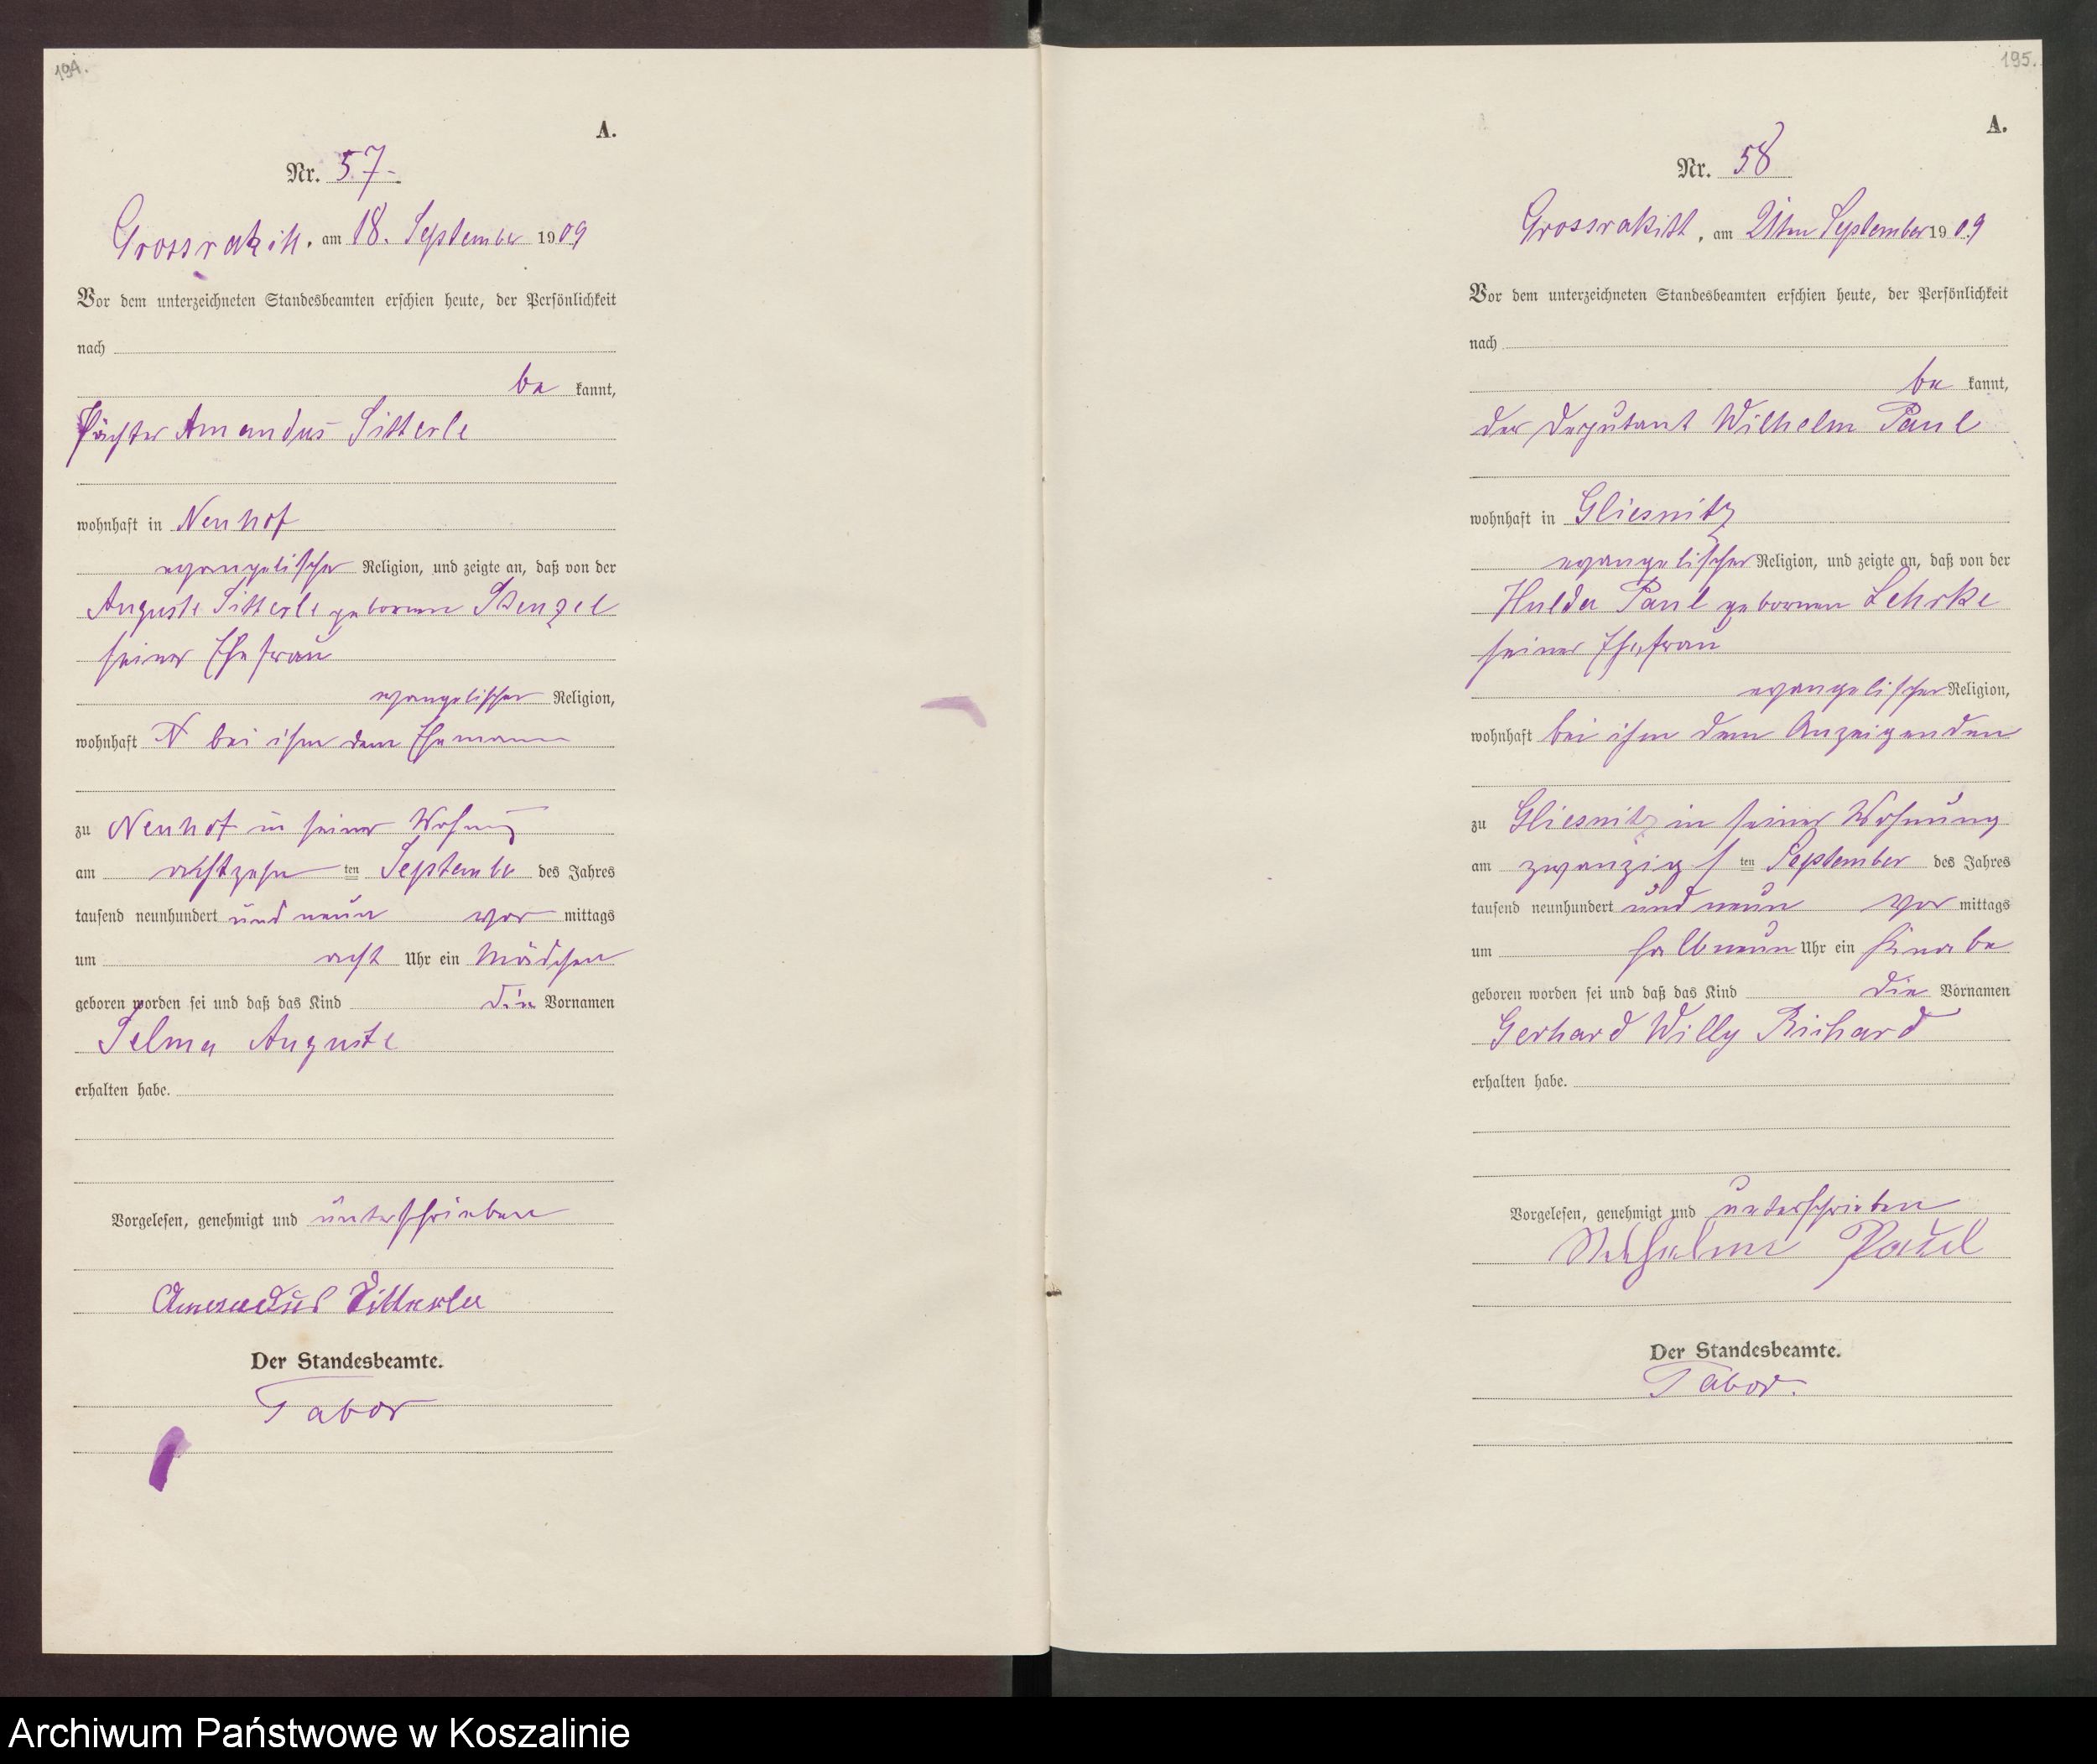 194.
A.
Nr. 57.
Grossrakitt, am 18. September 1909
Vor dem unterzeichneten Standesbeamten erschien heute, der Persönlichkeit
nach
be kannt,
Pächter Amandus Sitterle
wohnhaft in Neuhof
evangelischer Religion, und zeigte an, daß von der
Auguste Sitterle geborenen
seiner Ehefrau
evangelischer Religion,
wohnhaft bei ihm dem Ehemann
zu Neuhof in seiner Wohnung
am achtzehn ten September des Jahres
tausend neunhundert und neun vor mittags
um acht Uhr ein Mädchen
geboren worden sei und daß das Kind die Vornamen
Selma Auguste
erhalten habe.
Vorgelesen, genehmigt und unterschrieben
Amandus Sitterle
Der Standesbeamte.
Tabor
195.
A.
Nr. 58
Grossrakitt, am 21ten September 1909
Vor dem unterzeichneten Standesbeamten erschien heute, der Persönlichkeit
nach
be kannt,
der Deputant Wilhelm Paul
wohnhaft in Gliesnitz
evangelischer Religion, und zeigte an, daß von der
Hulda Paul geborenen Lehrke
seiner Ehefrau
evangelischer Religion,
wohnhaft bei ihm dem Anzeigenden
zu Gliesnitz in seiner Wohnung
am zwanzigs ten September des Jahres
tausend neunhundert und neun vor mittags
um halb neun Uhr ein Knabe
geboren worden sei und daß das Kind die Vornamen
Gerhard Willy Richard
erhalten habe.
Vorgelesen, genehmigt und unterschrieben
Wilhelm Paul
Der Standesbeamte.
Tabor.
Archiwum Państwowe w Koszalinie